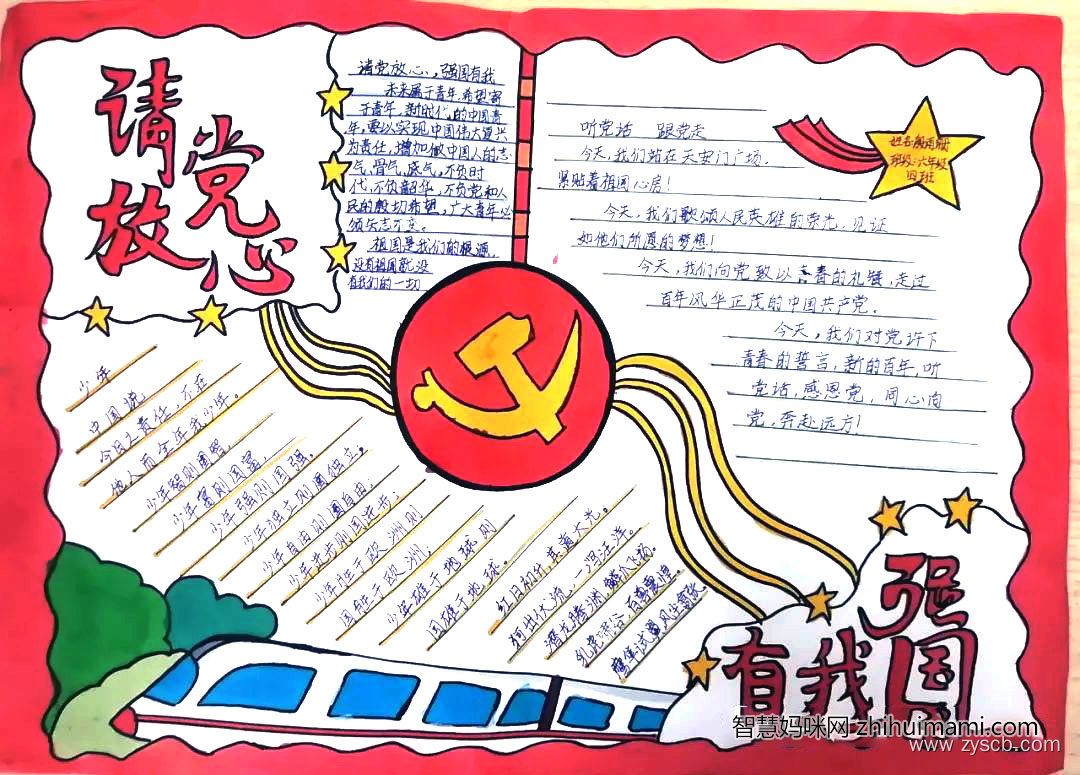 请党
放心
请党放心,强国有我
未来属于青年,希望寄
于青年,新时代的中国青
年,要以实现中国伟大复兴
为责任,增加做中国人的志
气,骨气,底气,不负时
代,不负韶华,不负党和人
民的殷切希望,广大青年必
须矢志不立。
祖国是我们的根源,
没有祖国就没
有我们的一切
听党话 跟党走
今天,我们站在天安门广场,
紧贴着祖国心房!
今天,我们歌颂人民英雄的荣光,见证
如他们所愿的梦想!
今天,我们向党致以青春的礼赞,走过
百年风华正茂的中国共产党。
今天,我们对党许下
青春的誓言,新的百年,听
党话,感恩党,同心向
党,奔赴远方!
姓名:
班级:六年级
四班
少年
中国说
今日之责任,不在
他人而全年我少年。
少年智则国智,
少年富则国富,
少年强则国强。
少年独立则国独立。
少年自由则国自由;
少年进步则国进步;
少年胜于欧洲则
国胜于欧洲,
少年雄于地球则
国雄于地球。
红日初升,其道大光。
河出伏流,一泻汪洋。
潜龙腾渊,鳞爪飞扬。
乳虎啸谷,百兽震惶。
鹰隼试翼,风尘翕张
强
有我国
智慧妈咪网 zhihuimami.com
www.zyscb.com